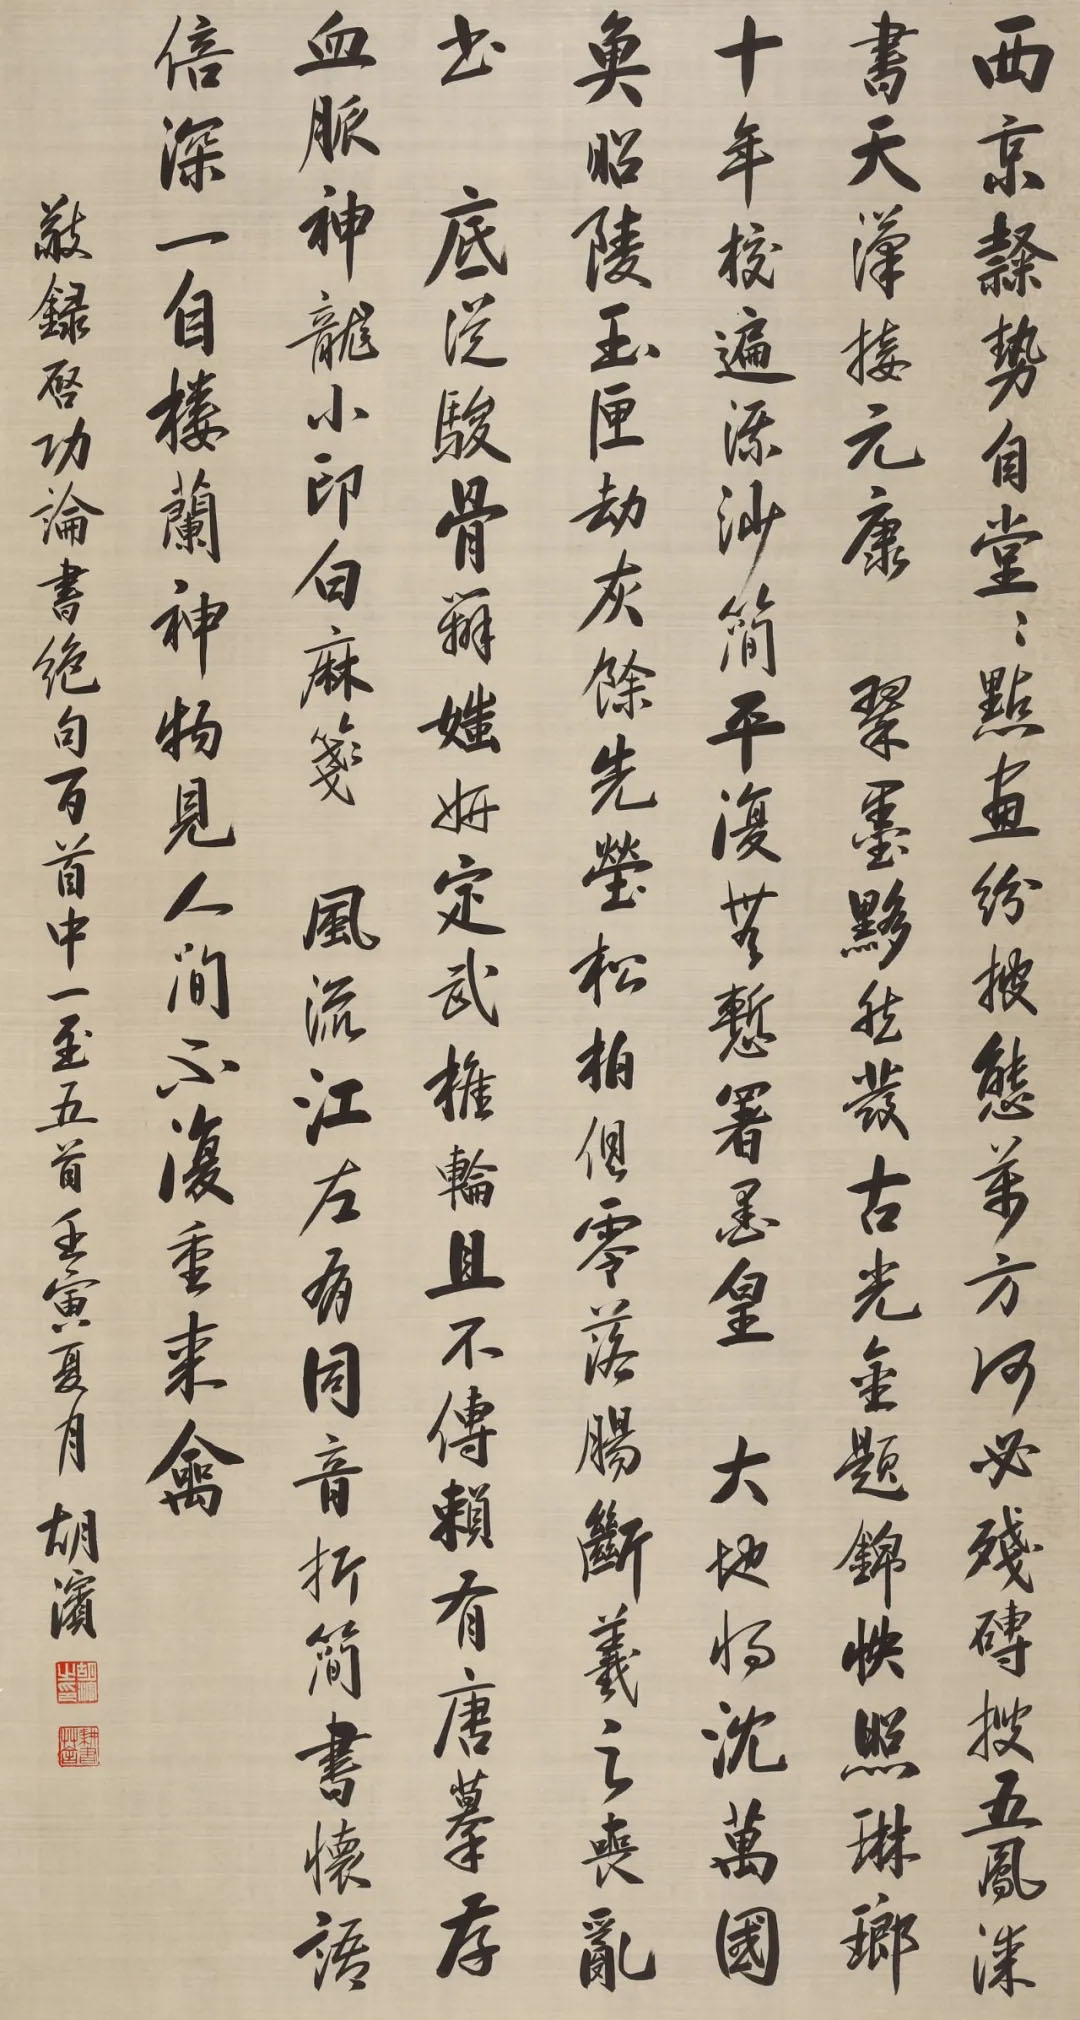 西京隸勢自堂〻點畫紛披態萬方何必殘磚搜五鳳漆
書天漢接元康　翠墨黟然發古光金題錦帙照琳瑯
十年校遍流沙簡平復無慙署墨皇　大地將沈萬國
魚昭陵玉匣劫灰餘先塋松柏俱零落腸斷羲之喪亂
書　底從駿骨辨媸妍定武椎輪且不傳賴有唐摹存
血脈神龍小印白麻箋　風流江左有同音折簡書懷語
倍深一自樓蘭神物見人間不復重來禽
敬錄啓功論書絶句百首中一至五首壬寅夏月　胡濱